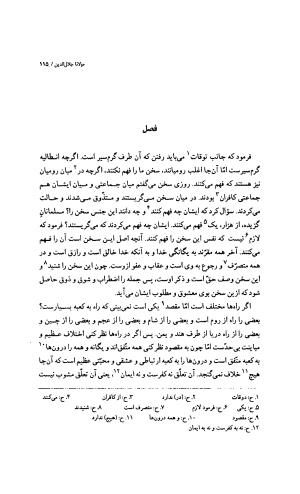 مولانا جلال‌الدین / ۱۱۵
فصل
فرمود که جانب توقات۱ می‌باید رفتن که آن طرف گرم‌سیر است. اگرچه انطالیه
گرم‌سیرست امّا آن‌جا اغلب رومیانند، سخن ما را فهم نکنند، اگرچه در۲ میان رومیان
نیز هستند که فهم می‌کنند. روزی سخن می‌گفتم میان جماعتی و میان ایشان هم
جماعتی کافران۳ بودند. در میان سخن می‌گریستند و متذوّق می‌شدند و حالت
می‌کردند. سؤال کرد که ایشان چه فهم کنند۴ و چه دانند این جنس سخن را؟ مسلمانان
گزیده، از هزار، یک۵ فهم می‌کنند. ایشان چه فهم می‌کردند که می‌گریستند؟ فرمود که
لازم۶ نیست که نفس این سخن را فهم کنند. آنچه اصل این سخن است آن را فهم
می‌کنند. آخر همه مقرّند به یگانگی خدا و به آنکه خدا خالق است و رازق است و در
همه متصرّف۷ و رجوع به وی است و عقاب و عفو ازوست. چون این سخن را شنید۸ و
این سخن وصف حقّ است و ذکر اوست، پس جمله را اضطراب و شوق و ذوق حاصل
شود که ازین سخن بوی معشوق و مطلوب ایشان می‌آید.
اگر راه‌ها مختلف است امّا مقصد۹ یکی است. نمی‌بینی که راه به کعبه بسیارست؟
بعضی را راه از روم است و بعضی را از شام و بعضی را از عجم و بعضی را از چین و
بعضی را از راه دریا از طرف هند و یمن. پس اگر در راه‌ها نظر کنی اختلاف عظیم و
مباینت بی‌حدّست امّا چون به مقصود نظر کنی همه متّفق‌اند و یگانه و همه را درون‌ها۱۰
به کعبه متّفق است و درون‌ها را به کعبه ارتباطی و عشقی و محبّتی عظیم است که آن‌جا
هیچ۱۱ خلاف نمی‌گنجد. آن تعلّق نه کفرست و نه ایمان۱۲، یعنی آن تعلّق مشوب نیست
۱. ح: دوقات ۲. ح: (در) ندارد ۳. ح: از کافران ۴. ح: می‌کنند
۵. ح: یکی ۶. ح: فرمود لازم ۷. ح: متصرف است ۸. ح: شنیدند
۹. ح: مقصود ۱۰. ح: و همه درون‌ها ۱۱. ح: (هیچ) ندارد
۱۲. ح: نه به کفرست و نه به ایمان